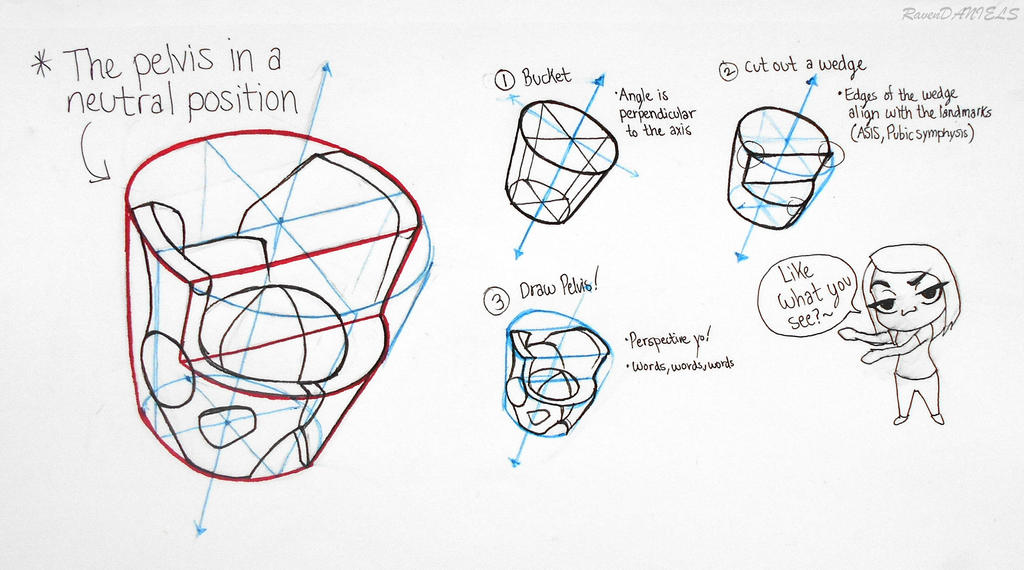 RavenDANIELS
* The pelvis in a
neutral position
① Bucket
• Angle is
perpendicular
to the axis
② Cut out a wedge
• Edges of the wedge
align with the landmarks
(ASIS, Pubic symphysis)
③ Draw Pelvis!
• Perspective yo!
• Words, words, words
Like
what you
see?~